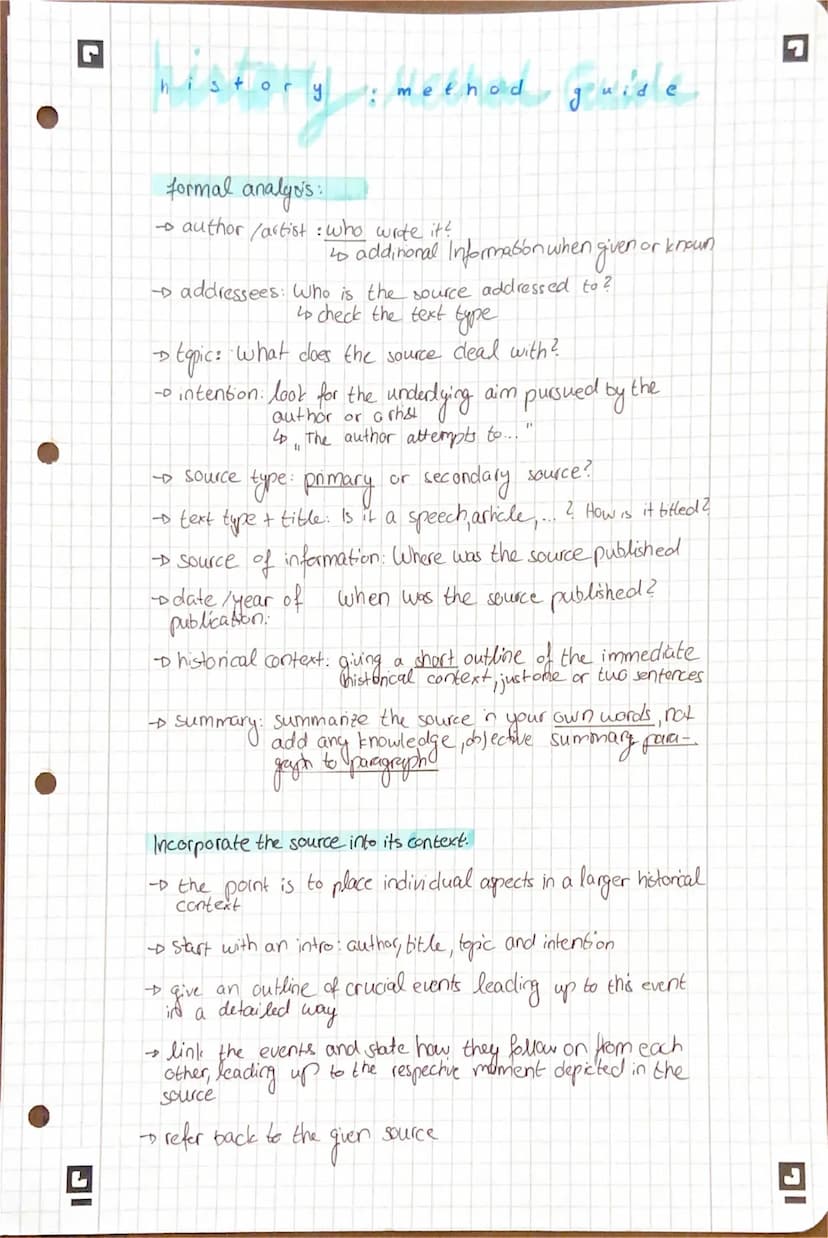 history : method guide
formal analysis:
→ author/artist : who wrote it?
↳ additional Information when given or known
→ addressees: Who is the source addressed to?
↳ check the text type
→ topic: What does the source deal with?
→ intention: look for the underlying aim pursued by the
author or artist
↳ „The author attempts to..."
→ source type: primary or secondary source?
→ text type + title: Is it a speech, article, ...? How is it titled?
→ source of information: Where was the source published
→ date /year of when was the source published?
publication:
→ historical context: giving a short outline of the immediate
historical context, just one or two sentences
→ summary: summarize the source in your own words, not
add any knowledge, objective summary para-
graph to paragraph
Incorporate the source into its context:
→ the point is to place individual aspects in a larger historical
context
→ start with an intro: author, title, topic and intention
→ give an outline of crucial events leading up to this event
in a detailed way
→ link the events and state how they follow on from each
other, leading up to the respective moment depicted in the
source
→ refer back to the given source